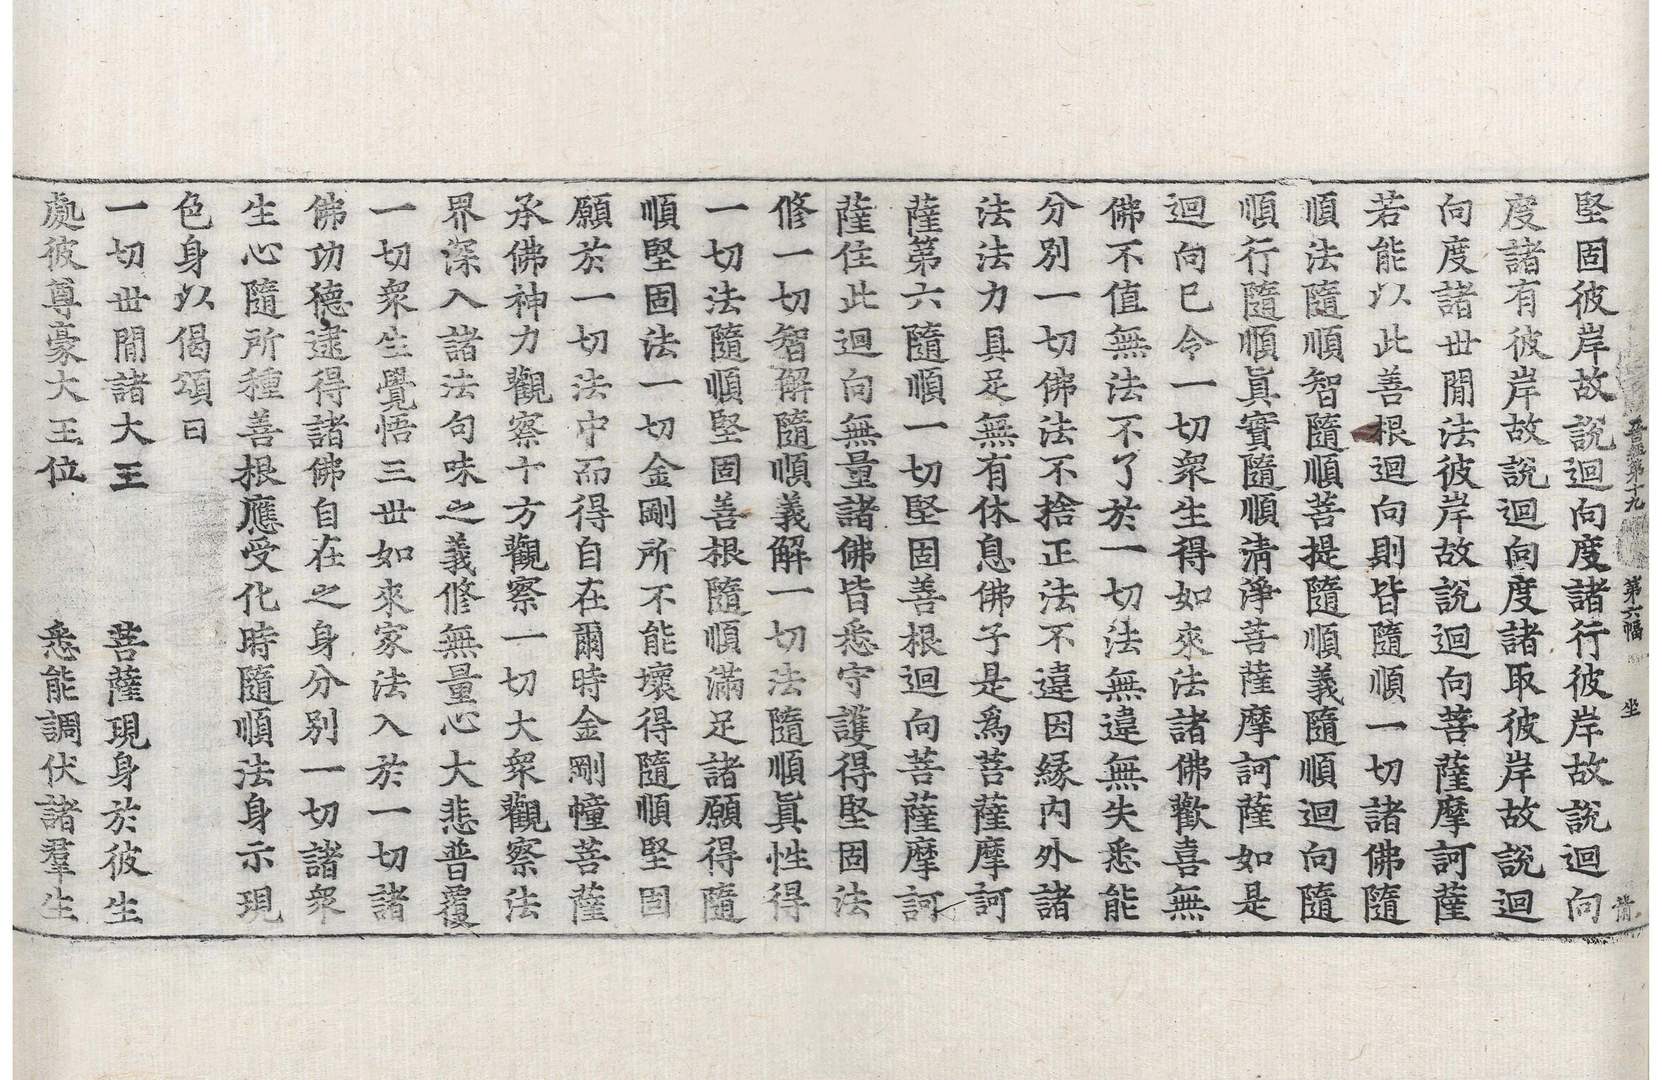 晉經第十九 第六幅 坐
堅固彼岸故說迴向度諸行彼岸故說迴向
度諸有彼岸故說迴向度諸取彼岸故說迴
向度諸世閒法彼岸故說迴向菩薩摩訶薩
若能以此善根迴向則皆隨順一切諸佛隨
順法隨順智隨順菩提隨順義隨順迴向隨
順行隨順眞實隨順淸淨菩薩摩訶薩如是
迴向已令一切衆生得如來法諸佛歡喜無
佛不值無法不了於一切法無違無失悉能
分別一切佛法不捨正法不違因緣內外諸
法法力具足無有休息佛子是爲菩薩摩訶
薩第六隨順一切堅固善根迴向菩薩摩訶
薩住此迴向無量諸佛皆悉守護得堅固法
修一切智解隨順義解一切法隨順眞性得
一切法隨順堅固善根隨順滿足諸願得隨
順堅固法一切金剛所不能壞得隨順堅固
願於一切法中而得自在爾時金剛幢菩薩
承佛神力觀察十方觀察一切大衆觀察法
界深入諸法句味之義修無量心大悲普覆
一切衆生覺悟三世如來家法入於一切諸
佛功德逮得諸佛自在之身分別一切諸衆
生心隨所種善根應受化時隨順法身示現
色身以偈頌曰
一切世閒諸大王 菩薩現身於彼生
處彼尊豪大王位 悉能調伏諸羣生